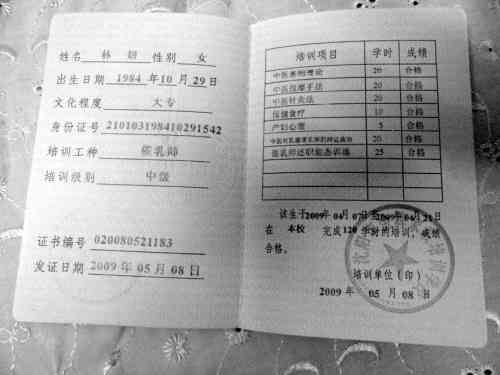 姓名 林 妍 性别 女
出生日期 1984 年 10 月 29 日
文化程度 大专
身份证号 210103198410291542
培训工种 催乳师
培训级别 中级
证书编号 020080521183
发证日期 2009 年 05 月 08 日
培训项目 学时 成绩
中医基础理论 20 合格
中医按摩手法 20 合格
中医针灸法 20 合格
保健食疗 10 合格
产妇心理 5 合格
20 合格
催乳师述职能态训练 25 合格
该生于2009年 04月 07日 至2009年 04月 21日
在 本校 完成 120 学时的培训，成绩
合格。
培训单位（印）
2009 年 05 月 08 日